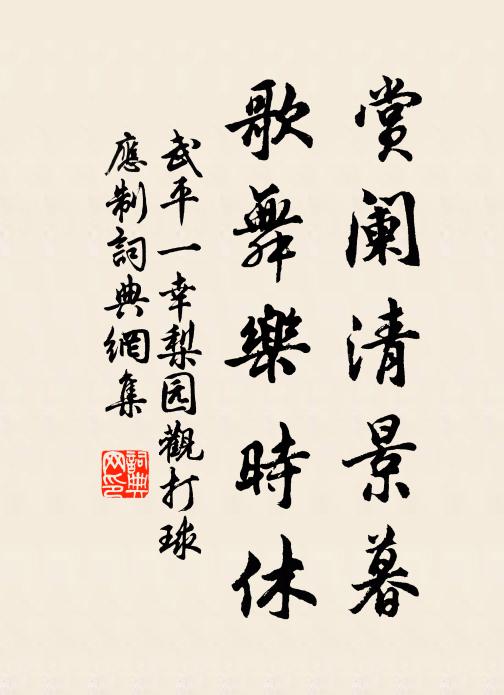 赏阑清景暮
歌舞樂時休
武平一幸梨园觀打球
應制詞典網集
詞典网印